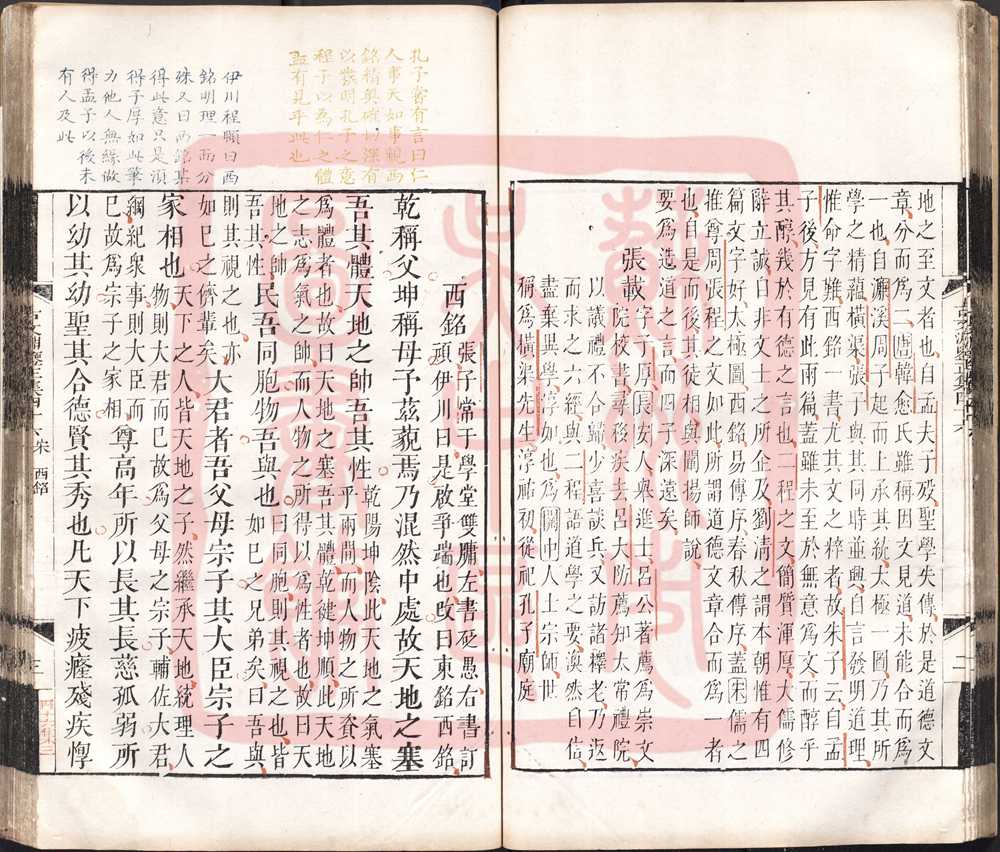 地之至文者也自孟夫子歿聖學失傳於是道德文
章分而爲二唐韓愈氏雖稱因文見道未能合而爲
一也自濂溪周子起而上承其統太極一圖乃其所
學之精蘊橫渠張子與其同時並興自言發明道理
惟命字難西銘一書尤其文之粹者故朱子云自孟
子後方見有此兩篇蓋雖未至於無意爲文而醇乎
其醇幾於有德之言矣二程之文簡質渾厚大儒修
辭立誠固非文士之所企及劉清之謂本朝惟有四
篇文字好太極圖西銘易傳序春秋傳序蓋宋儒之
推尊周張程之文如此所謂道德文章合而爲一者
也自是而後其徒相與闡揚師說
要爲造道之言 子深遠矣
張載 字子厚長安人舉進士呂公著薦爲崇文
院校書尋移疾去呂大防薦知太常禮院
以議禮不合歸少喜談兵又訪諸釋老乃返
而求之六經與二程語道學之要渙然自信
盡棄異學淳如也關中人士宗師世
稱爲橫渠先生淳祐初從祀孔子廟庭
孔子嘗有言曰仁
人事天如事親西
銘精奧確以深有
以發明孔子之意
程子以爲仁之體
豈有見乎此也
伊川程頤曰西
銘明理一而分
殊又曰西銘某
得此意只是須
得子厚如此筆
力他人無緣做
得孟子以後未
有人及此
西銘 張子常于學堂雙牖左書砭愚右書訂
頑伊川曰是啟爭端也改曰東銘西銘
乾稱父坤稱母子茲藐焉乃混然中處故天地之塞
吾其體天地之帥吾其性 乾陽坤陰此天地之氣塞
乎兩間而人物之所資以
爲體者也故曰天地之塞吾其體乾健坤順此天地
之志爲氣之帥而人物之所得以爲性者也故曰天
地之帥
吾其性 民吾同胞物吾與也 曰同胞則其視之也
如己之兄弟矣曰吾與
則其視之也亦
如己之儕輩矣 大君者吾父母宗子其大臣宗子之
家相也 天下之人皆天地之子然繼承天地統理人
物則大君而已故爲父母之宗子輔佐大君
綱紀衆事則大臣而
已故爲宗子之家相 尊高年所以長其長慈孤弱所
以幼其幼聖其合德賢其秀也凡天下疲癃殘疾惸